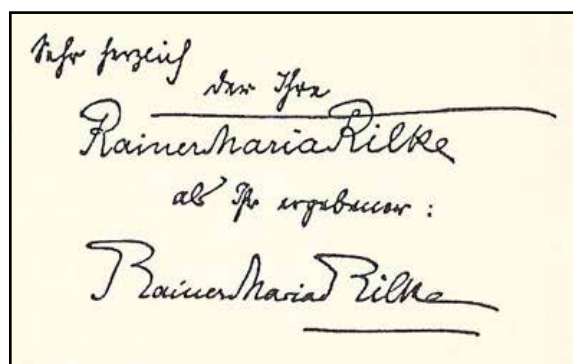 Sehr herzlich
der Ihre
Rainer Maria Rilke
als Ihr ergebener:
Rainer Maria Rilke